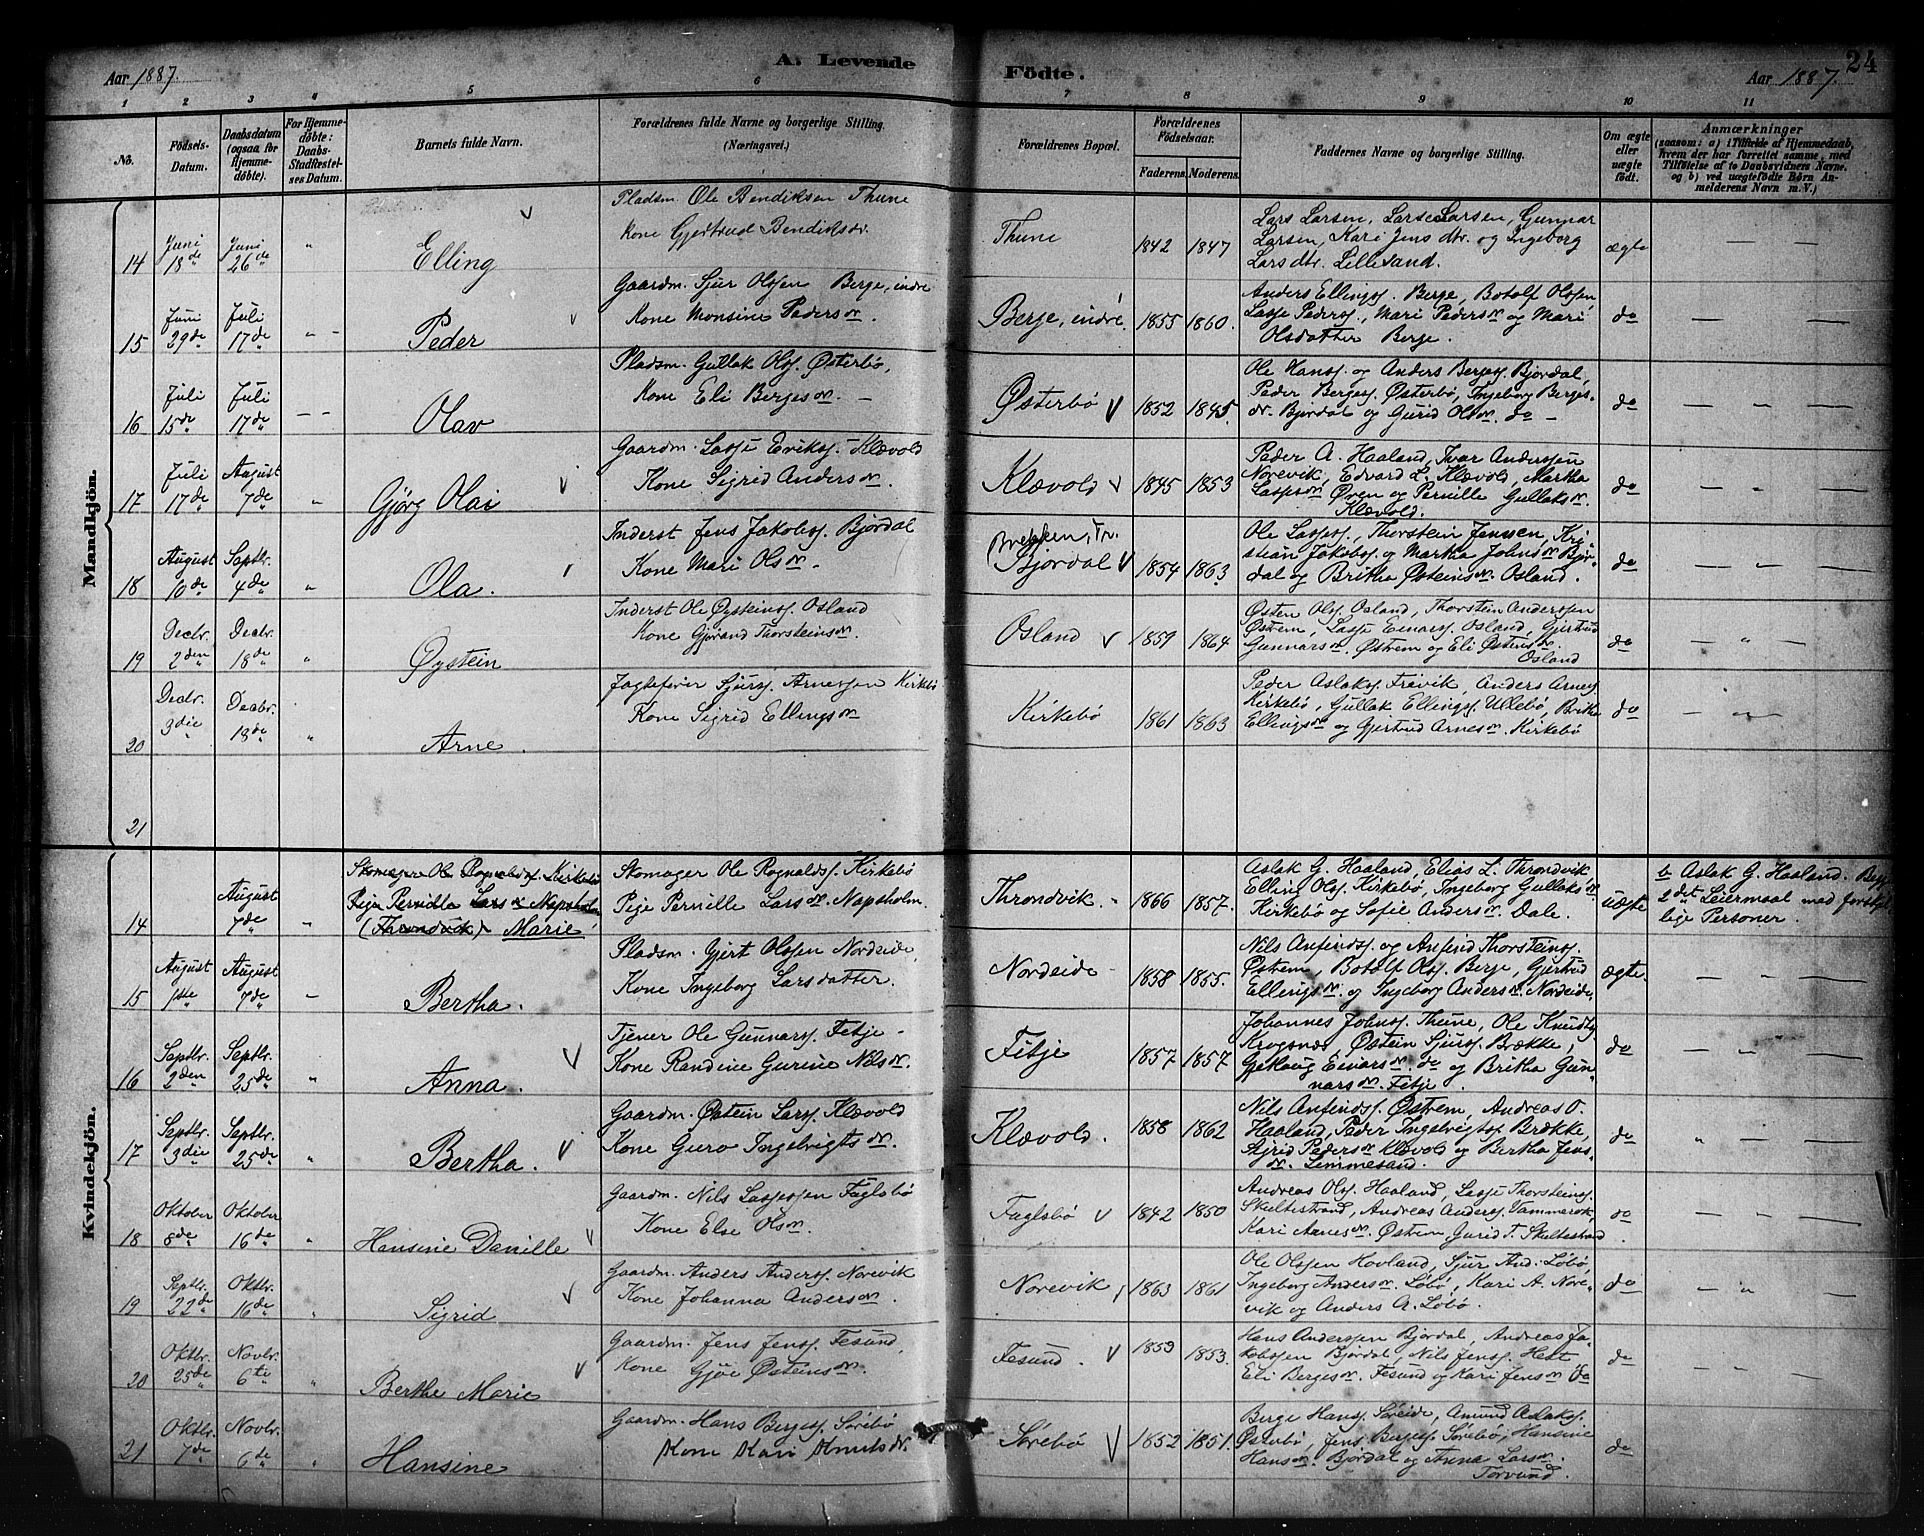 Aar 1887.
A. Levende
Födte.
Aar 1887.
24
1 2 3 4 5 6 7 8 9 10 11
No.
Födsels-
Datum.
Daabsdatum
(ogsaa for
Hjemme-
döbte).
For Hjemme-
döbte:
Daabs-
Stadfæstel-
ses Datum.
Barnets fulde Navn.
Forældrenes fulde Navne og borgerlige Stilling.
(Næringsvei.)
Forældrenes Bopæl.
Forældrenes
Födselsaar.
Faderens. Moderens.
Faddernes Navne og borgerlige Stilling.
Om ægte
eller
uægte
födt.
Anmærkninger
(saasom: a) i Tilfælde af Hjemmedaab,
hvem der har forrettet samme, med
Tilföielse af to Daabsvidners Navne.
og b) ved uægtefödte Börn An-
melderens Navn m. V.)
Mandkjön.
14
Juni
18de
Juni
26de
"
Elling
Pladsm. Ole Bendiksen Thune
Kone Gjertrud Bendiksdr.
Thune
1842 1847
Lars Larsen, Lars Larsen, Gunnar
Larsen, Kari Jens dtr. og Ingeborg
Lars dtr. Lillesand.
ægte
15
Juni
29de
Juli
17de
Peder
Gaardm. Sjur Olsen Berge, indre
Kone Monsine Pedersdr.
Berge, indre.
1855 1860.
Anders Ellings. Berge, Botolf Olsen,
Lasse Peders., Mari Pedersdr og Mari
Olsdatter Berge.
do
16
Juli
15de
Juli
17de
Olav
Pladsm. Gullak Ols. Østerbø,
Kone Eli Bergesdr. –
Østerbø
1852 1845.
Ole Hanss. og Anders Berges. Bjordal,
Peder Berges. Østerbø, Ingeborg Berges-
dr. Bjordal og Gurid Olsdr. do –
do
17
Juli
17de
August
7de
"
Gjörg Olai
Gaardm. Lasse Eriks. Klævold
Kone Sigrid Andersdr.
Klævold
1845 1853
Peder A. Haaland, Ivar Andersen
Norevik, Edvard L. Klævold, Martha
Lassesdr Øren og Pernille Gullaksdr.
Klævold.
do
18
August
10de
Septbr.
4de
"
Ola.
Inderst Jens Jakobs. Bjordal
Kone Mari Olsdr.
Brekken, Tr.
Bjordal
1854 1863
Ole Lasses., Thorstein Jensen, Kri-
stian Jakobs. og Martha Johnsdr Bjor-
dal og Britha Østeinsdr. Osland.
do
19
Decbr.
2den
Decbr.
18de
"
Øystein
Inderst Ole Øysteins. Osland
Kone Gjørand Thorsteinsdr.
Osland
1859 1864
Østen Ols. Osland, Thorstein Andersen
Østrem, Lasse Einars. Osland, Gjertrud
Gunnarsdr. Østrem og Eli Østensdr.
Osland
do
20
Decbr.
3die
Decbr.
18de
"
Arne.
Jagtefører Sjurs. Arnessen Kirkebø
Kone Sigrid Ellingsdr
Kirkebø
1861 1863
Peder Aslaks. Freivik, Anders Arnes.
Kirkebø, Gullak Ellings. Ullebø, Britha
Ellingsdr og Gjertrud Arnesdr. Kirkebø
do
21
Kvindekjön.
14
August
7de
"
Skomager Ole Rognalds. Kirkebø
Pige Pernille Larsdr Napsholm
(Throndvik) Marie
Skomager Ole Rognalds. Kirkebø
Pige Pernille Larsdr. Napsholm.
Throndvik.
1866 1857.
Aslak G. Haaland, Elias L. Throndvik
Elling Ols. Kirkebø, Ingeborg Gullaksdr
Kirkebø og Sofie Andersdr. Dale.
uægte
b Aslak G. Haaland. Begges
2det Leiermaal med forskjel-
lige Personer.
15
August
1ste
August
7de
Bertha.
Pladsm. Gjert Olsen Nordeide,
Kone Ingeborg Larsdatter.
Nordeide
1858 1855.
Nils Anfinds. og Anfind Thorsteins.
Østrem, Botolf Ols. Berge, Gjertrud
Ellingsdr. og Ingeborg Andersdr. Nordeide.
ægte.
16
Septbr.
2den
Septbr.
25de
"
Anna.
Tjener Ole Gunnars. Fetje –
Kone Randine Gurine Nilsdr.
Fetje
1857 1857
Johannes Johns. Thune, Ole Knuds.
Krogsnæs, Østein Sjurs. Brække,
Gjøllaug Einarsdr. do og Britha Gun-
narsdr. Fetje.
do
17
Septbr.
3die
Septbr.
25de
"
Bertha.
Gaardm. Østein Lars. Klævold
Kone Guro Ingelvigtsdr.
Klævold.
1858 1862
Nils Anfinds. Østrem, Andreas O.
Haaland, Peder Ingelvigts. Brække,
Sigrid Pedersdr Klævold og Bertha Jens-
dr. Simmesand.
do
18
Oktober
8de
Oktober
16de
"
Hansine Danille
Gaardm. Nils Lassesen Fuglsbø
Kone Else Olsdr.
Fuglsbø
1842 1850
Andreas Ols. Haaland, Lasse Thorsteins.
Skeltestrand, Andreas Anders. Vammervik,
Kari Aanesdr. Østrem, Jurid T. Skeltestrand
do
19
Septbr.
22de
Oktbr.
16de
"
Sigrid
Gaardm. Anders Anders. Norevik
Kone Johanna Andersdr.
Norevik
1863 1861
Ole Olsen Hovland, Sjur And. Løbø,
Ingeborg Andersdr. Løbø, Kari A. Nore-
vik og Anders A. Løbø.
do
20
Oktbr.
25de
Novbr.
6te
"
Berthe Marie
Gaardm. Jens Jens. Fesund,
Kone Gjøe Østeinsdr.
Fesund.
1853 1853.
Hans Andersen Bjordal, Andreas Ja-
kobsen Bjordal, Nils Jens. Hest
Eli Bergesdr. Fesund og Kari Jensdr do
do
21
Oktbr.
7de
Novbr.
6de
"
Hansine
Gaardm. Hans Berges. Sørebø
Kone Kari Knutsdr.
Sørebø
1852 1851.
Berge Hanss. Søreide, Amund Aslaks.
Østebø, Jens Berges. Sørebø, Hansine
Hansdr. Bjordal og Anna Larsdr.
Torvund.
do